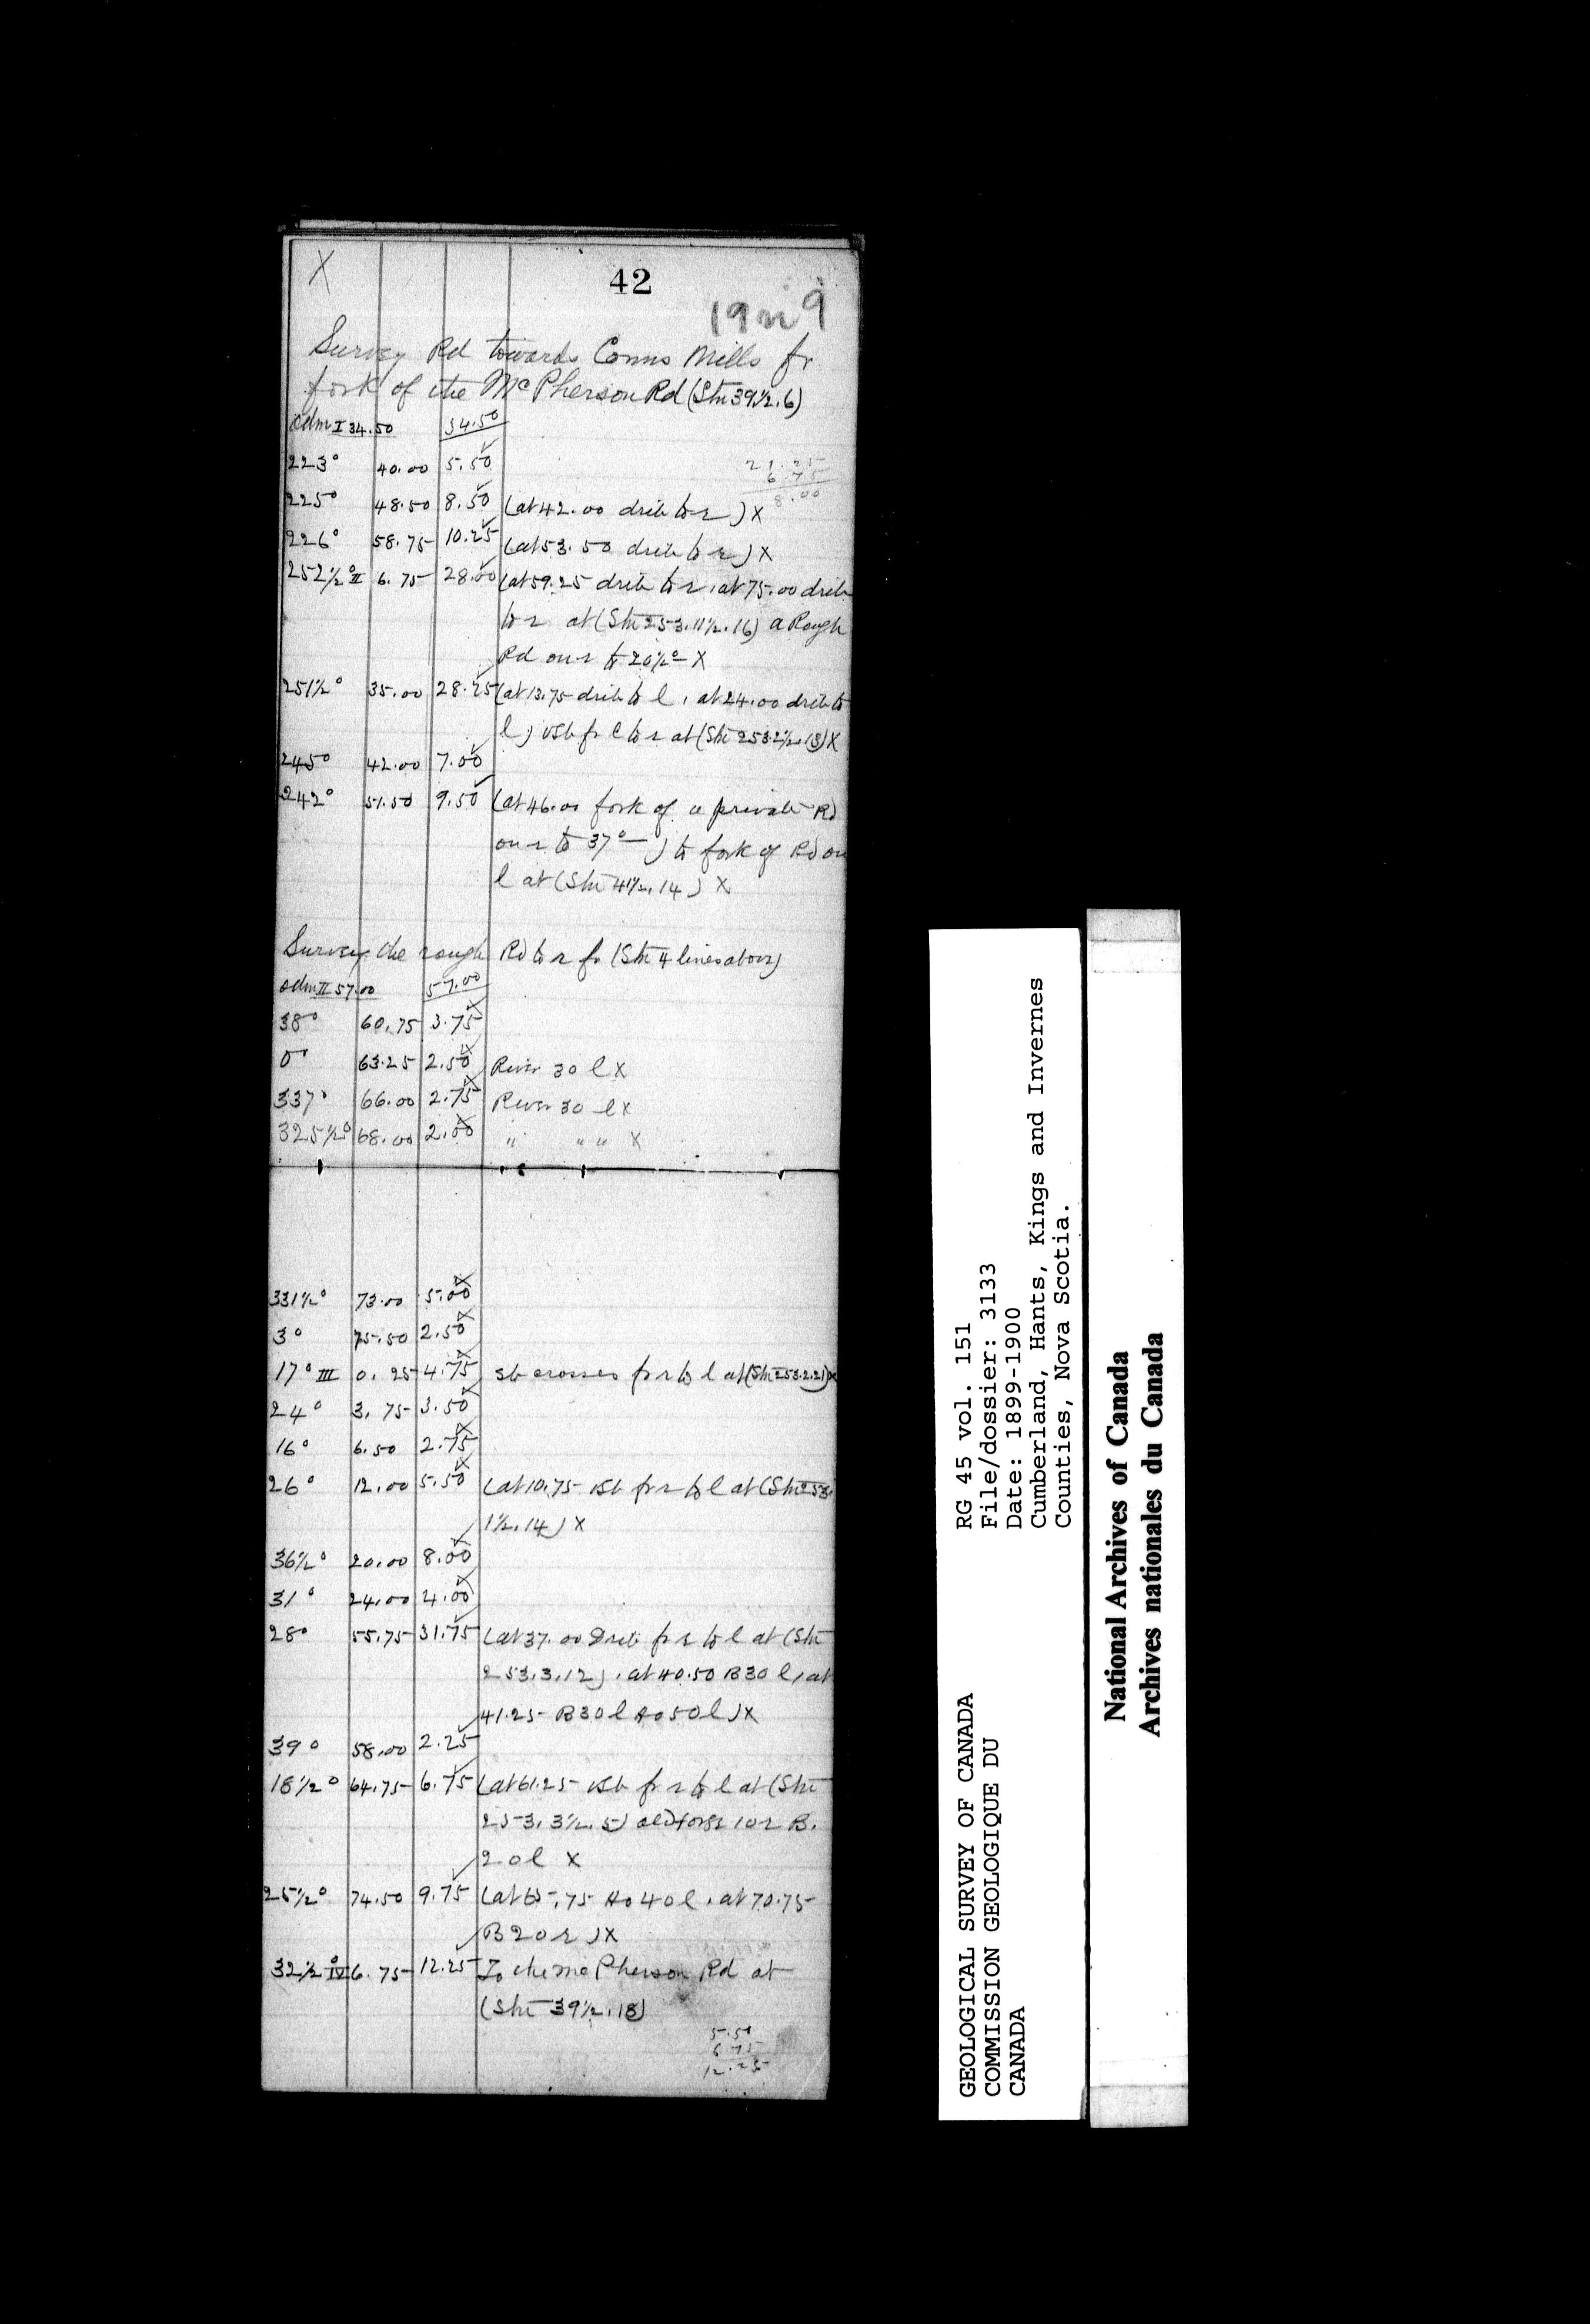 X
42
19 9
Survey Rd towards Conns Mills fr
fork of the McPherson Rd (Stn 39½.6)
odm I 34.50 34.50
223° 40.00 5.50
21.25
6.75
8.00
225° 48.50 8.50 (at 42.00 drib to r) X
226° 58.75 10.25 (at 53.50 drib to r) X
252½° II 6.75 28.00 (at 59.25 drib to r, at 75.00 drib
to r at (Stn 253.11½.16) a Rough
Rd on r to 20½° X
251½° 35.00 28.25 (at 13.75 drib to l, at 24.00 drib to
l) vsb fr l to r at (Stn 253.2½.13) X
245° 42.00 7.00
242° 51.50 9.50 (at 46.00 fork of a private Rd
on r to 37°) to fork of Rd on
l at (Stn 41½.14) X
Survey the rough Rd to r fr (Stn 4 lines above)
odm II 57.00 57.00
38° 60.75 3.75
0° 63.25 2.50 River 30 l X
337° 66.00 2.75 River 30 l X
325½° 68.00 2.00 " " " X
331½° 73.00 5.00
3° 75.50 2.50
17° III 0.25 4.75 sb crosses fr r to l at (Stn 253.2.21) X
24° 3.75 3.50
16° 6.50 2.75
26° 12.00 5.50 (at 10.75 vsb fr r to l at (Stn 253.
1½.14) X
36½° 20.00 8.00
31° 24.00 4.00
28° 55.75 31.75 (at 37.00 Drib fr r to l at (Stn
253.3.12), at 40.50 B 30 l, at
41.25 B 30 l Ho 50 l) X
39° 58.00 2.25
18½° 64.75 6.75 (at 61.25 vsb fr r to l at (Stn
253.3½.5) old 10 r B.
20 l X
25½° 74.50 9.75 (at 65.75 Ho 40 l, at 70.75
B 20 r) X
32½° IV 6.75 12.25 To the McPherson Rd at
(Stn 39½.18)
5.50
6.75
12.25
GEOLOGICAL SURVEY OF CANADA
COMMISSION GEOLOGIQUE DU
CANADA
RG 45 vol. 151
File/dossier: 3133
Date: 1899-1900
Cumberland, Hants, Kings and Invernes
Counties, Nova Scotia.
National Archives of Canada
Archives nationales du Canada